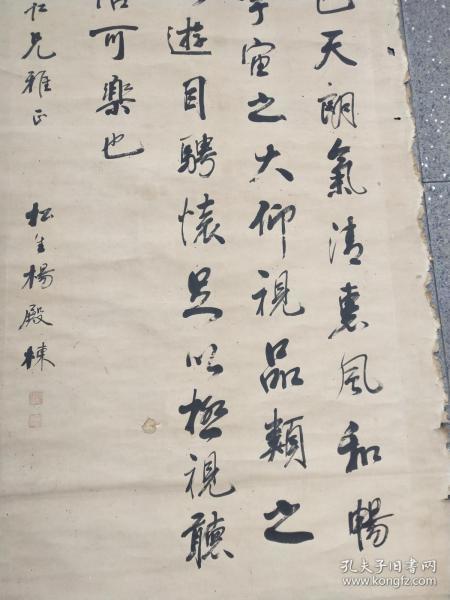 天朗氣清惠風和暢
宙之大仰視品類之
遊目騁懷足以極視聽
可樂也
仁兄雅正
松生楊殿棟
孔夫子旧书网
www.kongfz.com